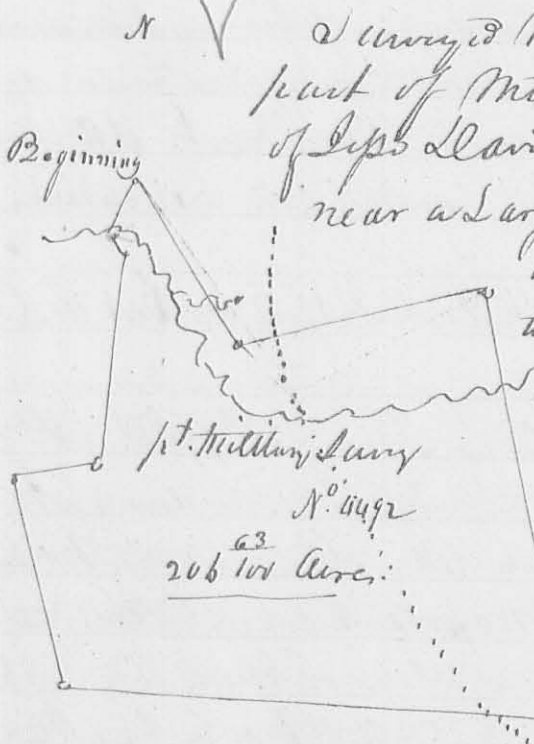 N
Surveyed
part of
of
near a
Beginning
pt. Military Survy
No. 4492
206 63/100 Acres